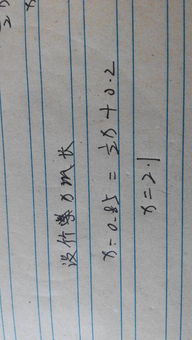 设竹竿x m长
x-0.85=½x+0.2
x=2.1